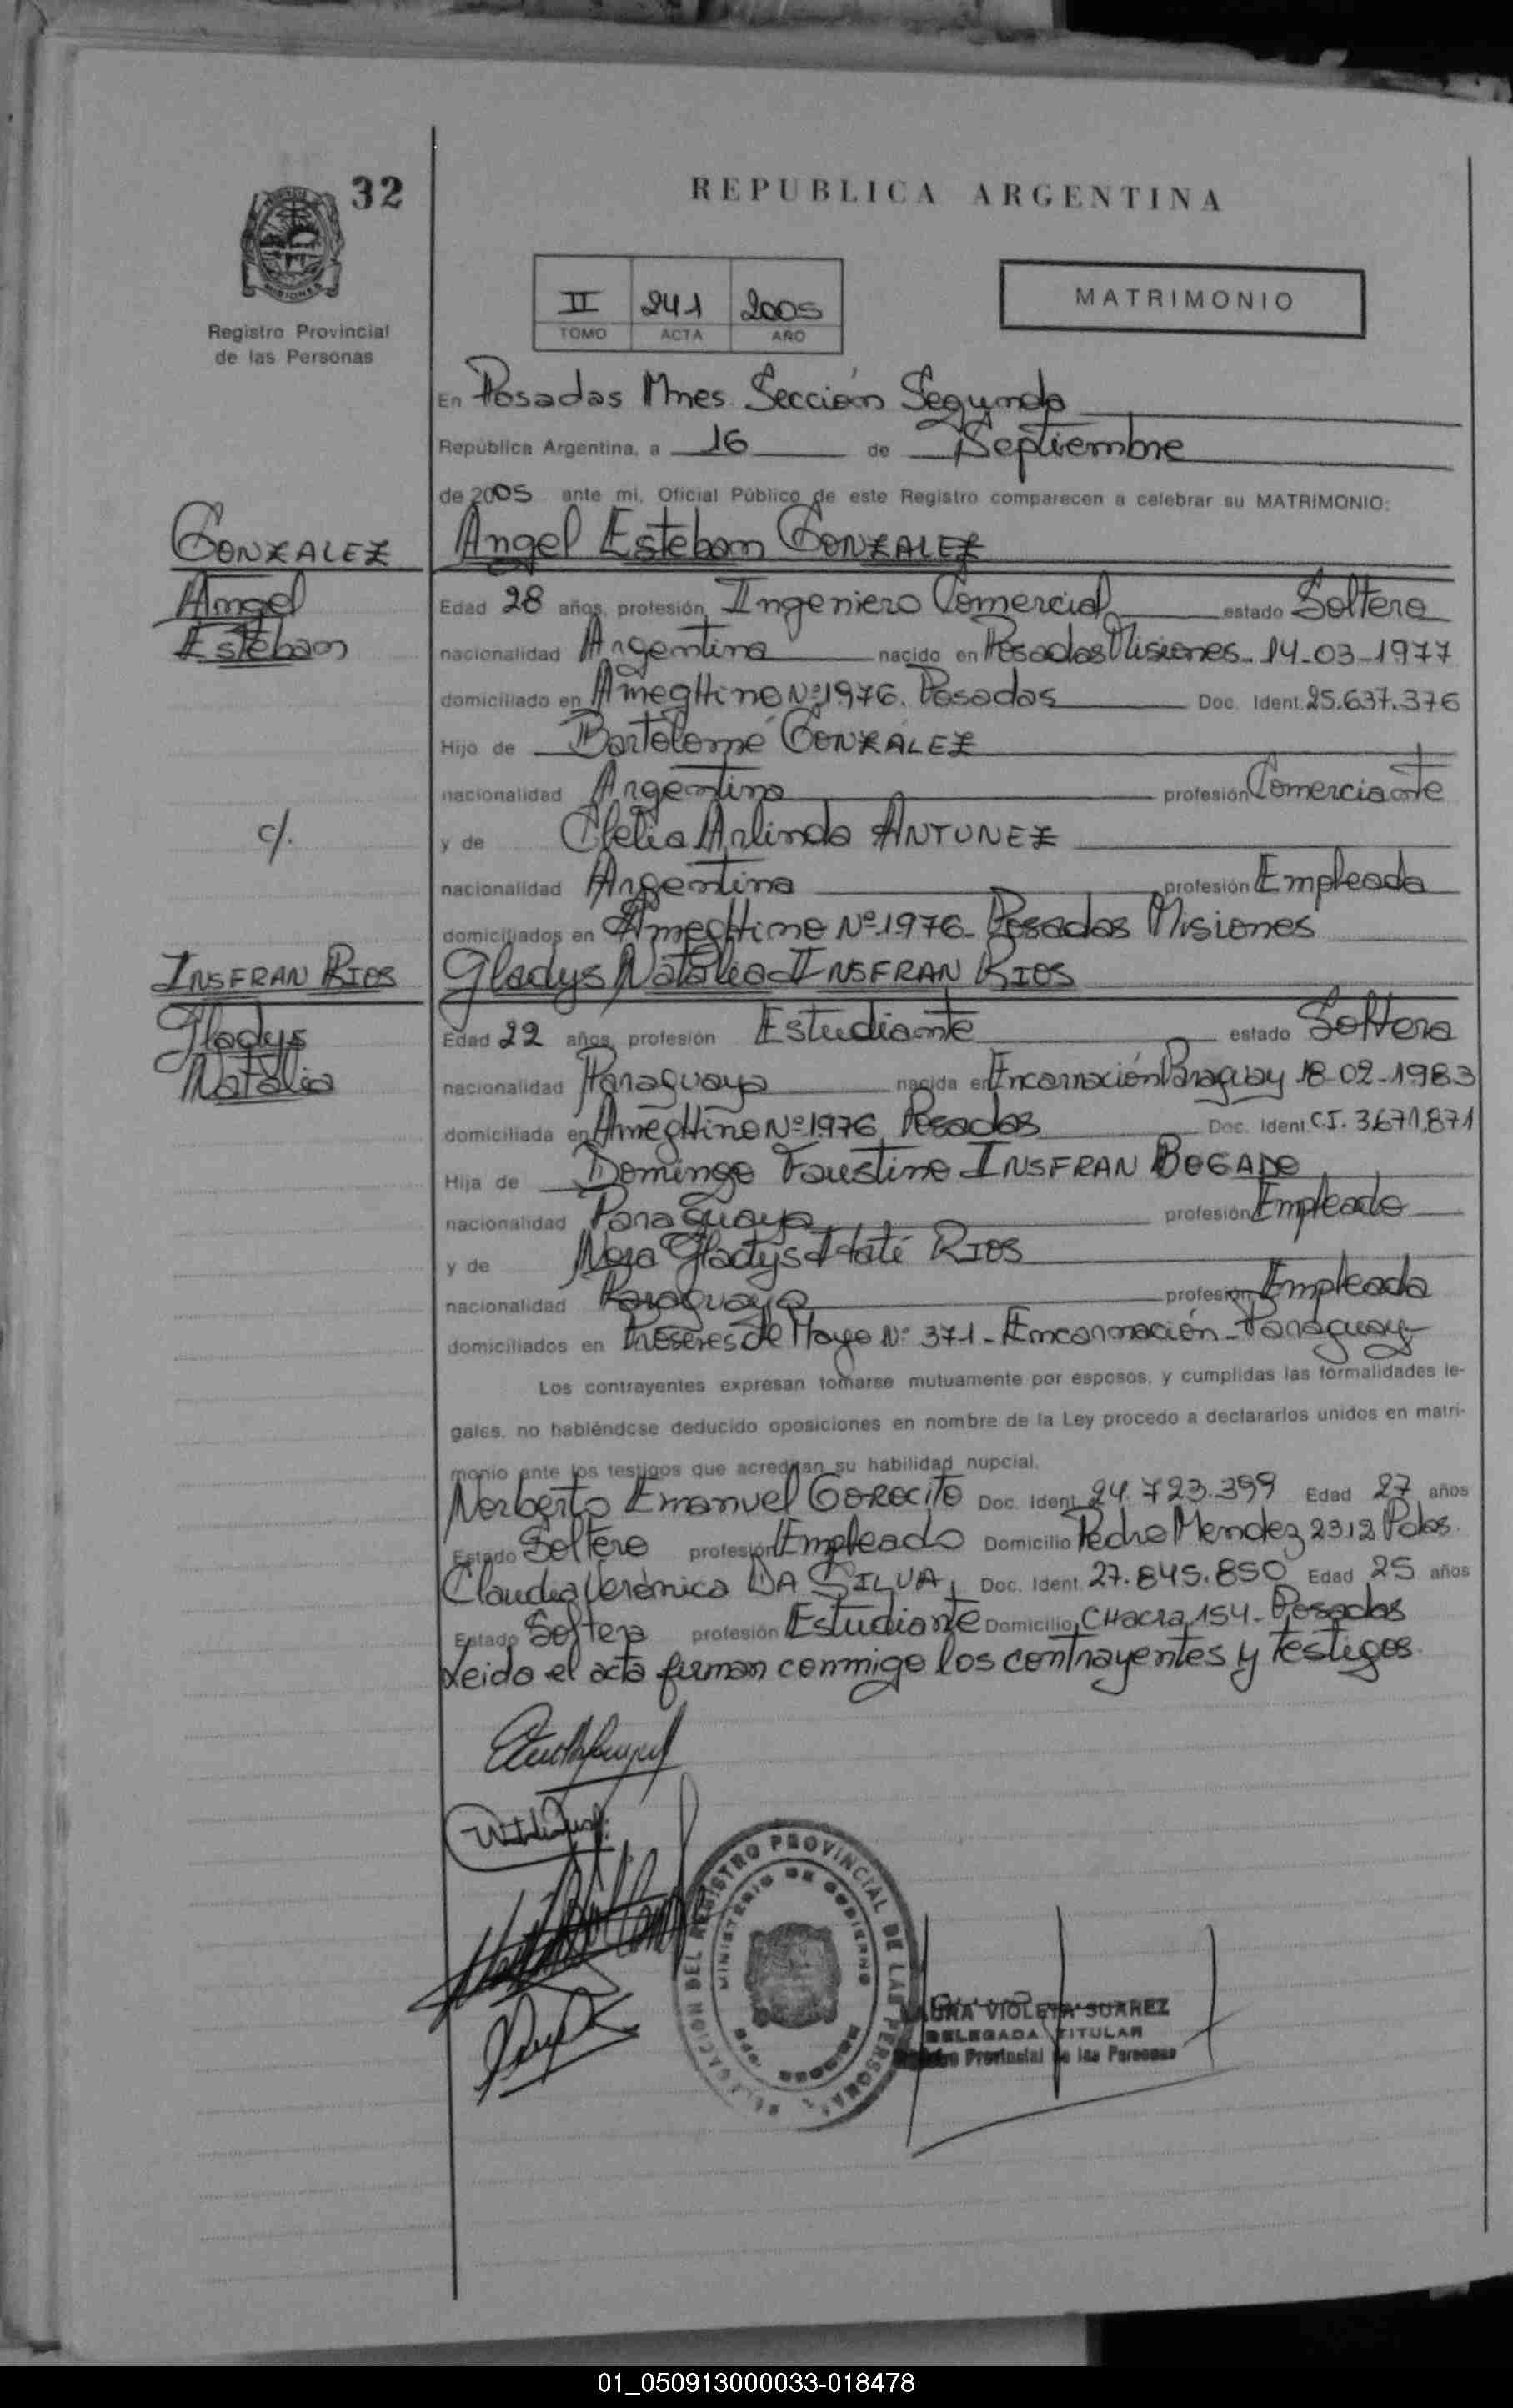 32
REPUBLICA ARGENTINA
MISIONES
Registro Provincial
de las Personas
II 241 2005
TOMO ACTA AÑO
MATRIMONIO
En Posadas Mnes. Sección Segunda
República Argentina, a 16 de Septiembre
de 2005 ante mi, Oficial Público de este Registro comparecen a celebrar su MATRIMONIO:
GONZALEZ
Angel
Esteban
Angel Esteban GONZALEZ
Edad 28 años, profesión Ingeniero Comercial estado Soltero
nacionalidad Argentina nacido en Posadas Misiones - 14-03-1977
domiciliado en AmegHino Nº 1976. Posadas Doc. Ident. 25.637.376
Hijo de Bartolomé GONZALEZ
nacionalidad Argentina profesión Comerciante
c/.
y de Clelia Arlinda ANTUNEZ
nacionalidad Argentina profesión Empleada
domiciliados en AmegHino Nº 1976 - Posadas Misiones
INSFRAN RIOS
Gladys
Natalia
Gladys Natalia INSFRAN RIOS
Edad 22 años, profesión Estudiante estado Soltera
nacionalidad Paraguaya nacida en Encarnación Paraguay 18-02-1983
domiciliada en AmegHino Nº 1976 Posadas Doc. Ident. C.I. 3.671.871
Hija de Domingo Faustino INSFRAN BOGADO
nacionalidad Paraguaya profesión Empleado
y de Gladys RIOS
nacionalidad Paraguaya profesión Empleada
domiciliados en de Mayo Nº 371 - Encarnación - Paraguay
Los contrayentes expresan tomarse mutuamente por esposos, y cumplidas las formalidades le-
gales, no habiéndose deducido oposiciones en nombre de la Ley procedo a declararlos unidos en matri-
monio ante los testigos que acreditan su habilidad nupcial.
Norberto Emanuel GOROCITO Doc. Ident. 24.723.399 Edad 27 años
Estado Soltero profesión Empleado Domicilio Pedro Mendez 2312 Pdas.
Claudia Verónica DA SILVA, Doc. Ident. 27.845.850 Edad 25 años
Estado Soltera profesión Estudiante Domicilio CHacra 154 - Posadas
Leida el acta firman conmigo los contrayentes y testigos.
DELEGACION DEL REGISTRO PROVINCIAL DE LAS PERSONAS
MINISTERIO DE GOBIERNO
VIOLETA SUAREZ
DELEGADA TITULAR
Provincial de las Personas
01_050913000033-018478